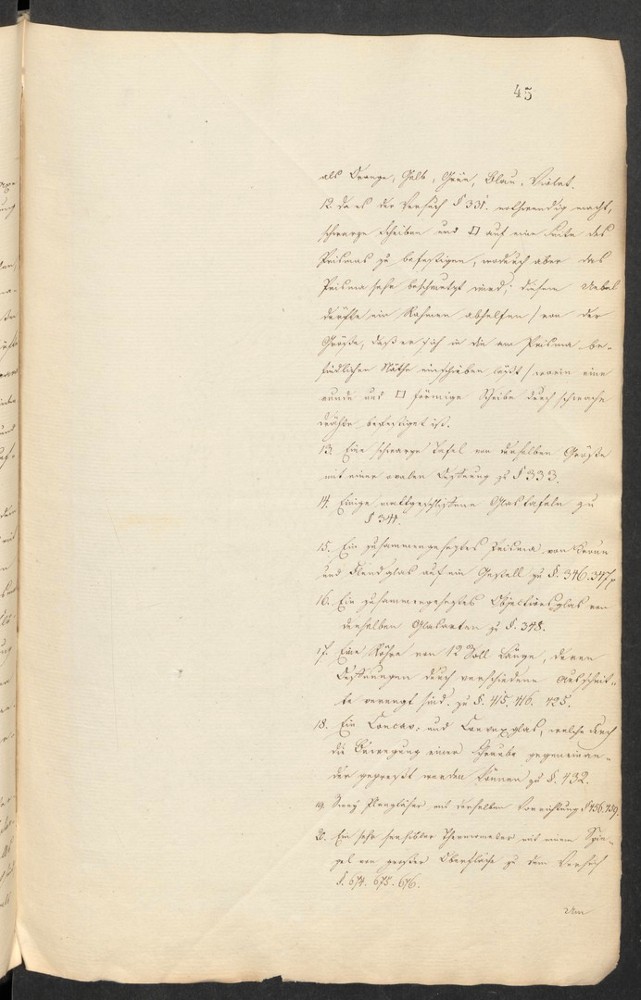 45
als Orange, Gelb, Grün, Blau, Violet.
12. Da es der Versuch § 331. nothwendig macht,
schwarze Scheiben und □ auf eine Seite des
Prismas zu befestigen, wodurch aber das
Prisma sehr beschmutzt wird; diesem Uebel
dürfte ein Rahmen abhelfen / von der
Größe, daß er sich in die am Prisma be-
findlichen Nuthe einschieben läßt / worin eine
runde und □ förmige Scheibe durch schwache
Drähte befestiget ist.
13. Eine schwarze Tafel von derselben Größe
mit einer ovalen Oeffnung zu § 333.
14. Einige mattgeschliffene Glastafeln zu
§ 344.
15. Ein zusammengesetztes Prisma von Crown
und Flindglas auf ein Gestell zu §. 346. 347
16. Ein zusammengesetztes Objectivglas von
denselben Glasarten zu §. 348.
17. Eine Röhre von 12 Zoll Länge, deren
Oeffnungen durch verschiedene Ausschnit-
te verengt sind. zu §. 415. 416. 425.
18. Ein Concav, und Convexglas, welche durch
die Bewegung einer Schraube gegeneinan-
der gepreßt werden können zu §. 432.
19. Zwey Plangläser mit derselben Vorrichtung § 456. 459.
20. Ein sehr sensibler Thermometer mit einem Spie-
gel von großer Oberfläche zu dem Versuch
§. 674. 675. 676.
Von